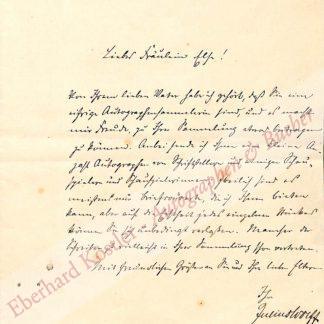 Liebes Fräulein Else!
Von Ihrem lieben Vater hab ich gehört, daß Sie eine
eifrige Autographensammlerin sind, und es macht
mir Freude, zu Ihrer Sammlung etwas beitragen
zu können. Anbei sende ich Ihnen eine kleine An-
zahl Autographen von Schriftstellern und einigen Schau-
spielern und Schauspielerinnen. Freilich sind es
meistens nur Briefe, die ich Ihnen bieten
kann, aber auf die Echtheit jedes einzelnen Stückes
können Sie sich unbedingt verlassen. Mancher der
Schreiber vielleicht in Ihrer Sammlung schon vertreten.
Mit freundlichen Grüßen an Sie und Ihre lieben Eltern
Ihr
Julius Wolff
Eberhard Köstler Autographen & Bücher